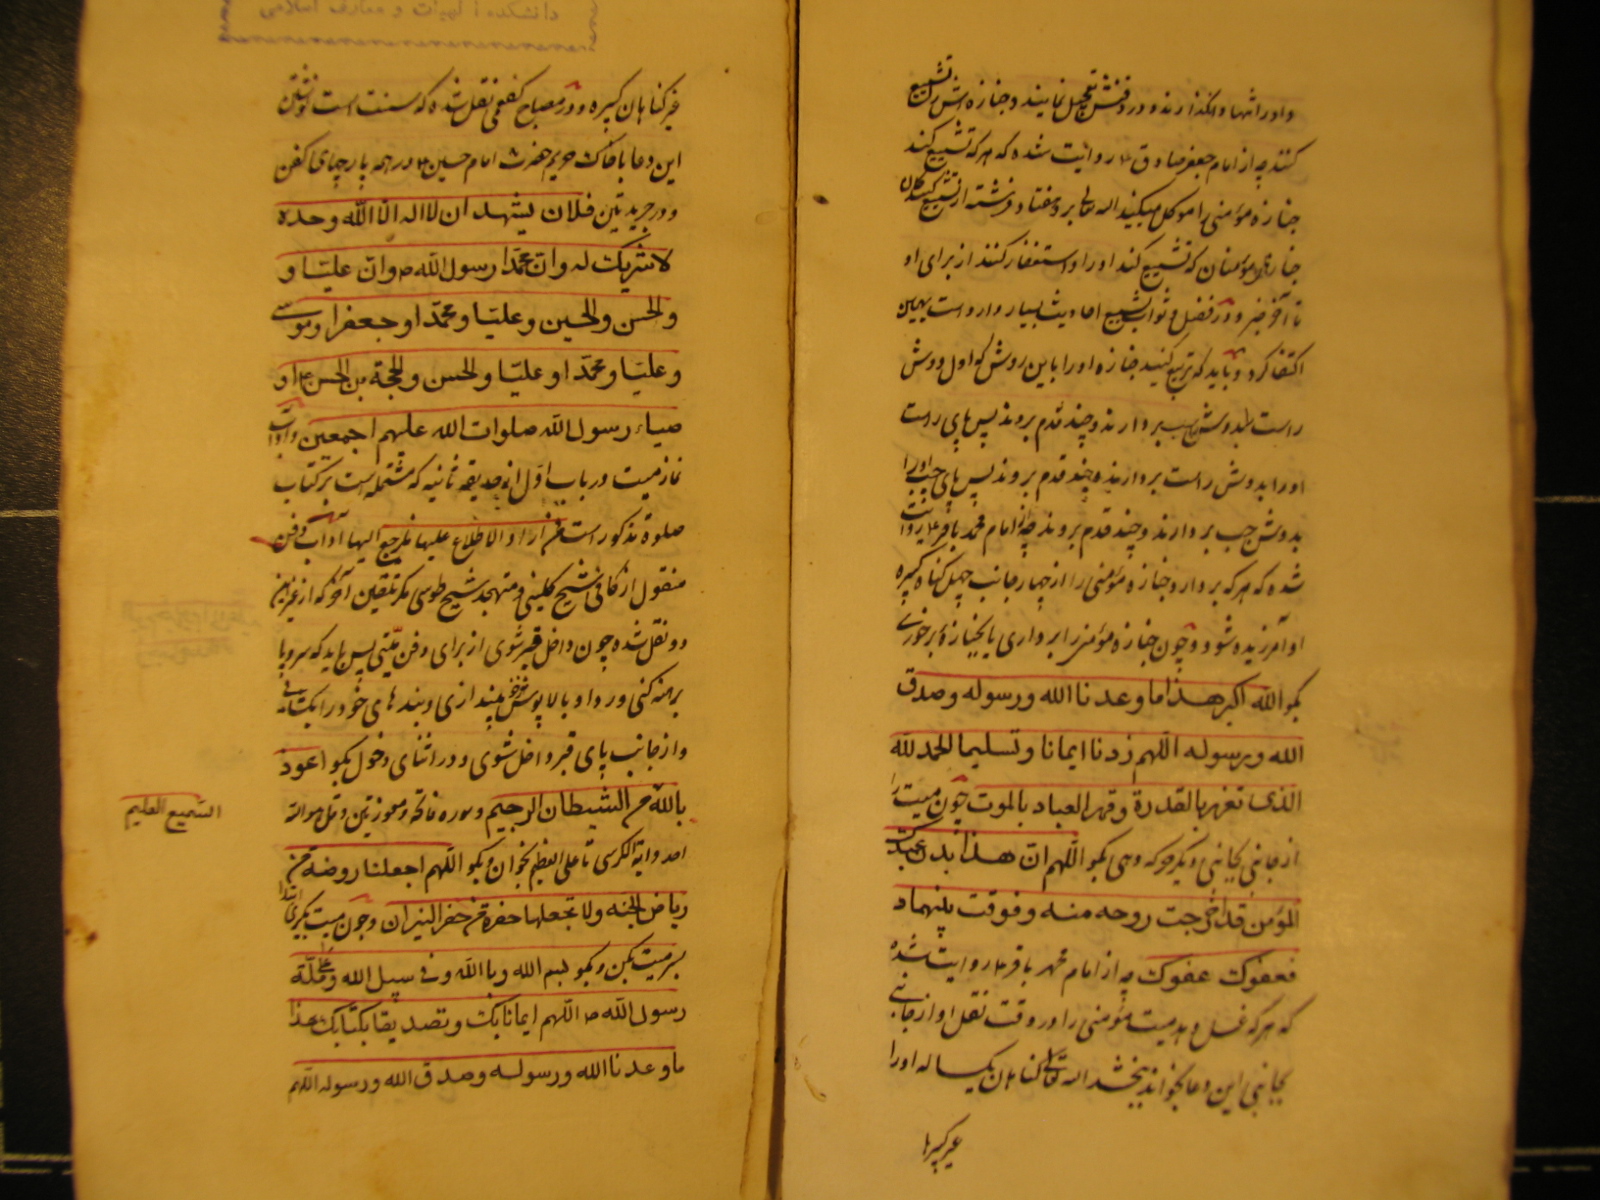 و او را تنها وانگذارند و در دفنش تعجیل نمایند و جنازه اش را تشییع
کنند چه از امام جعفر صادق ۴ روایت شده که هر که تشییع کند
جنازه مؤمنی را موکل میکنید الله تعالی برو هفتاد فرشته از تشییع کنندکان
جنازهٔ مؤمنان که تشییع کند او را و استغفار کنند از برای او
تا آخر و در فضل و ثواب تشییع احادیث بسیار وارد است بهمین
اکتفا کرد و باید که تربیع کنید جنازه او را باین روش که اول دوش
راست بردارند و چند قدم بروند پس پای راست
او را بدوش راست بردارند و چند قدم بروند پس پای چپ او را
بدوش چپ بردارند و چند قدم بروند چه از امام محمد باقر ۴ روایت
شده که هر که بردارد جنازه مؤمنی را از چهار جانب چهل کناه کبیره
او آمرزیده شود و چون جنازه مؤمنی را برداری یا بجنازهٔ برخوری
بکو الله اکبر هذا ما وعدنا الله ورسوله وصدق
الله ورسوله اللهم زدنا ایمانا وتسلیما الحمد لله
الذی تعزز بالقدرة وقهر العباد بالموت چون میت را
از جانبی بجانبی دیکر حرکت دهی بکو اللهم ان هذا بدن عبدک
المؤمن قد اخرجت روحه منه وفرقت بینهما
فعفوک عفوک چه از امام محمد باقر ۴ روایت شده
که هر که غسل دهد میت مؤمنی را و در وقت نقل او از جانبی
بجانبی این دعا بخواند ببخشد الله تعالی کناهان یکساله او را
غیر کبیرها
دانشکده الهیات و معارف اسلامی
غیر کناهان کبیره و در مصباح کفعمی نقل شده که سنت است نوشتن
این دعا با خاک حریم حضرت امام حسین ۴ در همه پارچهای کفن
و در جریدتین فلان یشهد ان لا اله الا الله وحده
لا شریک له وان محمدا رسول الله ص وان علیا و
والحسن والحسین وعلیا ومحمدا وجعفرا وموسی
وعلیا ومحمدا وعلیا والحسن والحجة بن الحسن ۴ او
صیاء رسول الله صلوات الله علیهم اجمعین و آداب
نماز میت در باب اول از حدیقه ثانیه که مشتمله است بر کتاب
صلوة مذکور است فمن اراد الاطلاع علیها فلیرجع الیها آداب دفن
منقول از کافی شیخ کلینی و متهجد شیخ طوسی مکر تلقین آخر که از غیر این
دو نقل شده چون داخل قبر شوی از برای دفن میتی پس باید که سر و پا
برهنه کنی و ردا و بالاپوش بیندازی و بندهای خود را بکشائی
و از جانب پای قبر داخل شوی و در اثنای دخول بکو اعوذ
بالله من الشیطان الرجیم و سوره فاتحه و معوذتین و قل هو الله
احد و ایة الکرسی تا علی العظیم بخوان و بکو اللهم اجعلنا روضة من
ریاض الجنه ولا تجعلها حفرة من حفر النیران و چون میت بکیری ابتدا
بسر میت بکن و بکو بسم الله وبالله وفی سبیل الله وعلی ملة
رسول الله ص اللهم ایمانا بک وتصدیقا بکتابک هذا
ما وعدنا الله ورسوله وصدق الله ورسوله اللهم
السمیع العلیم